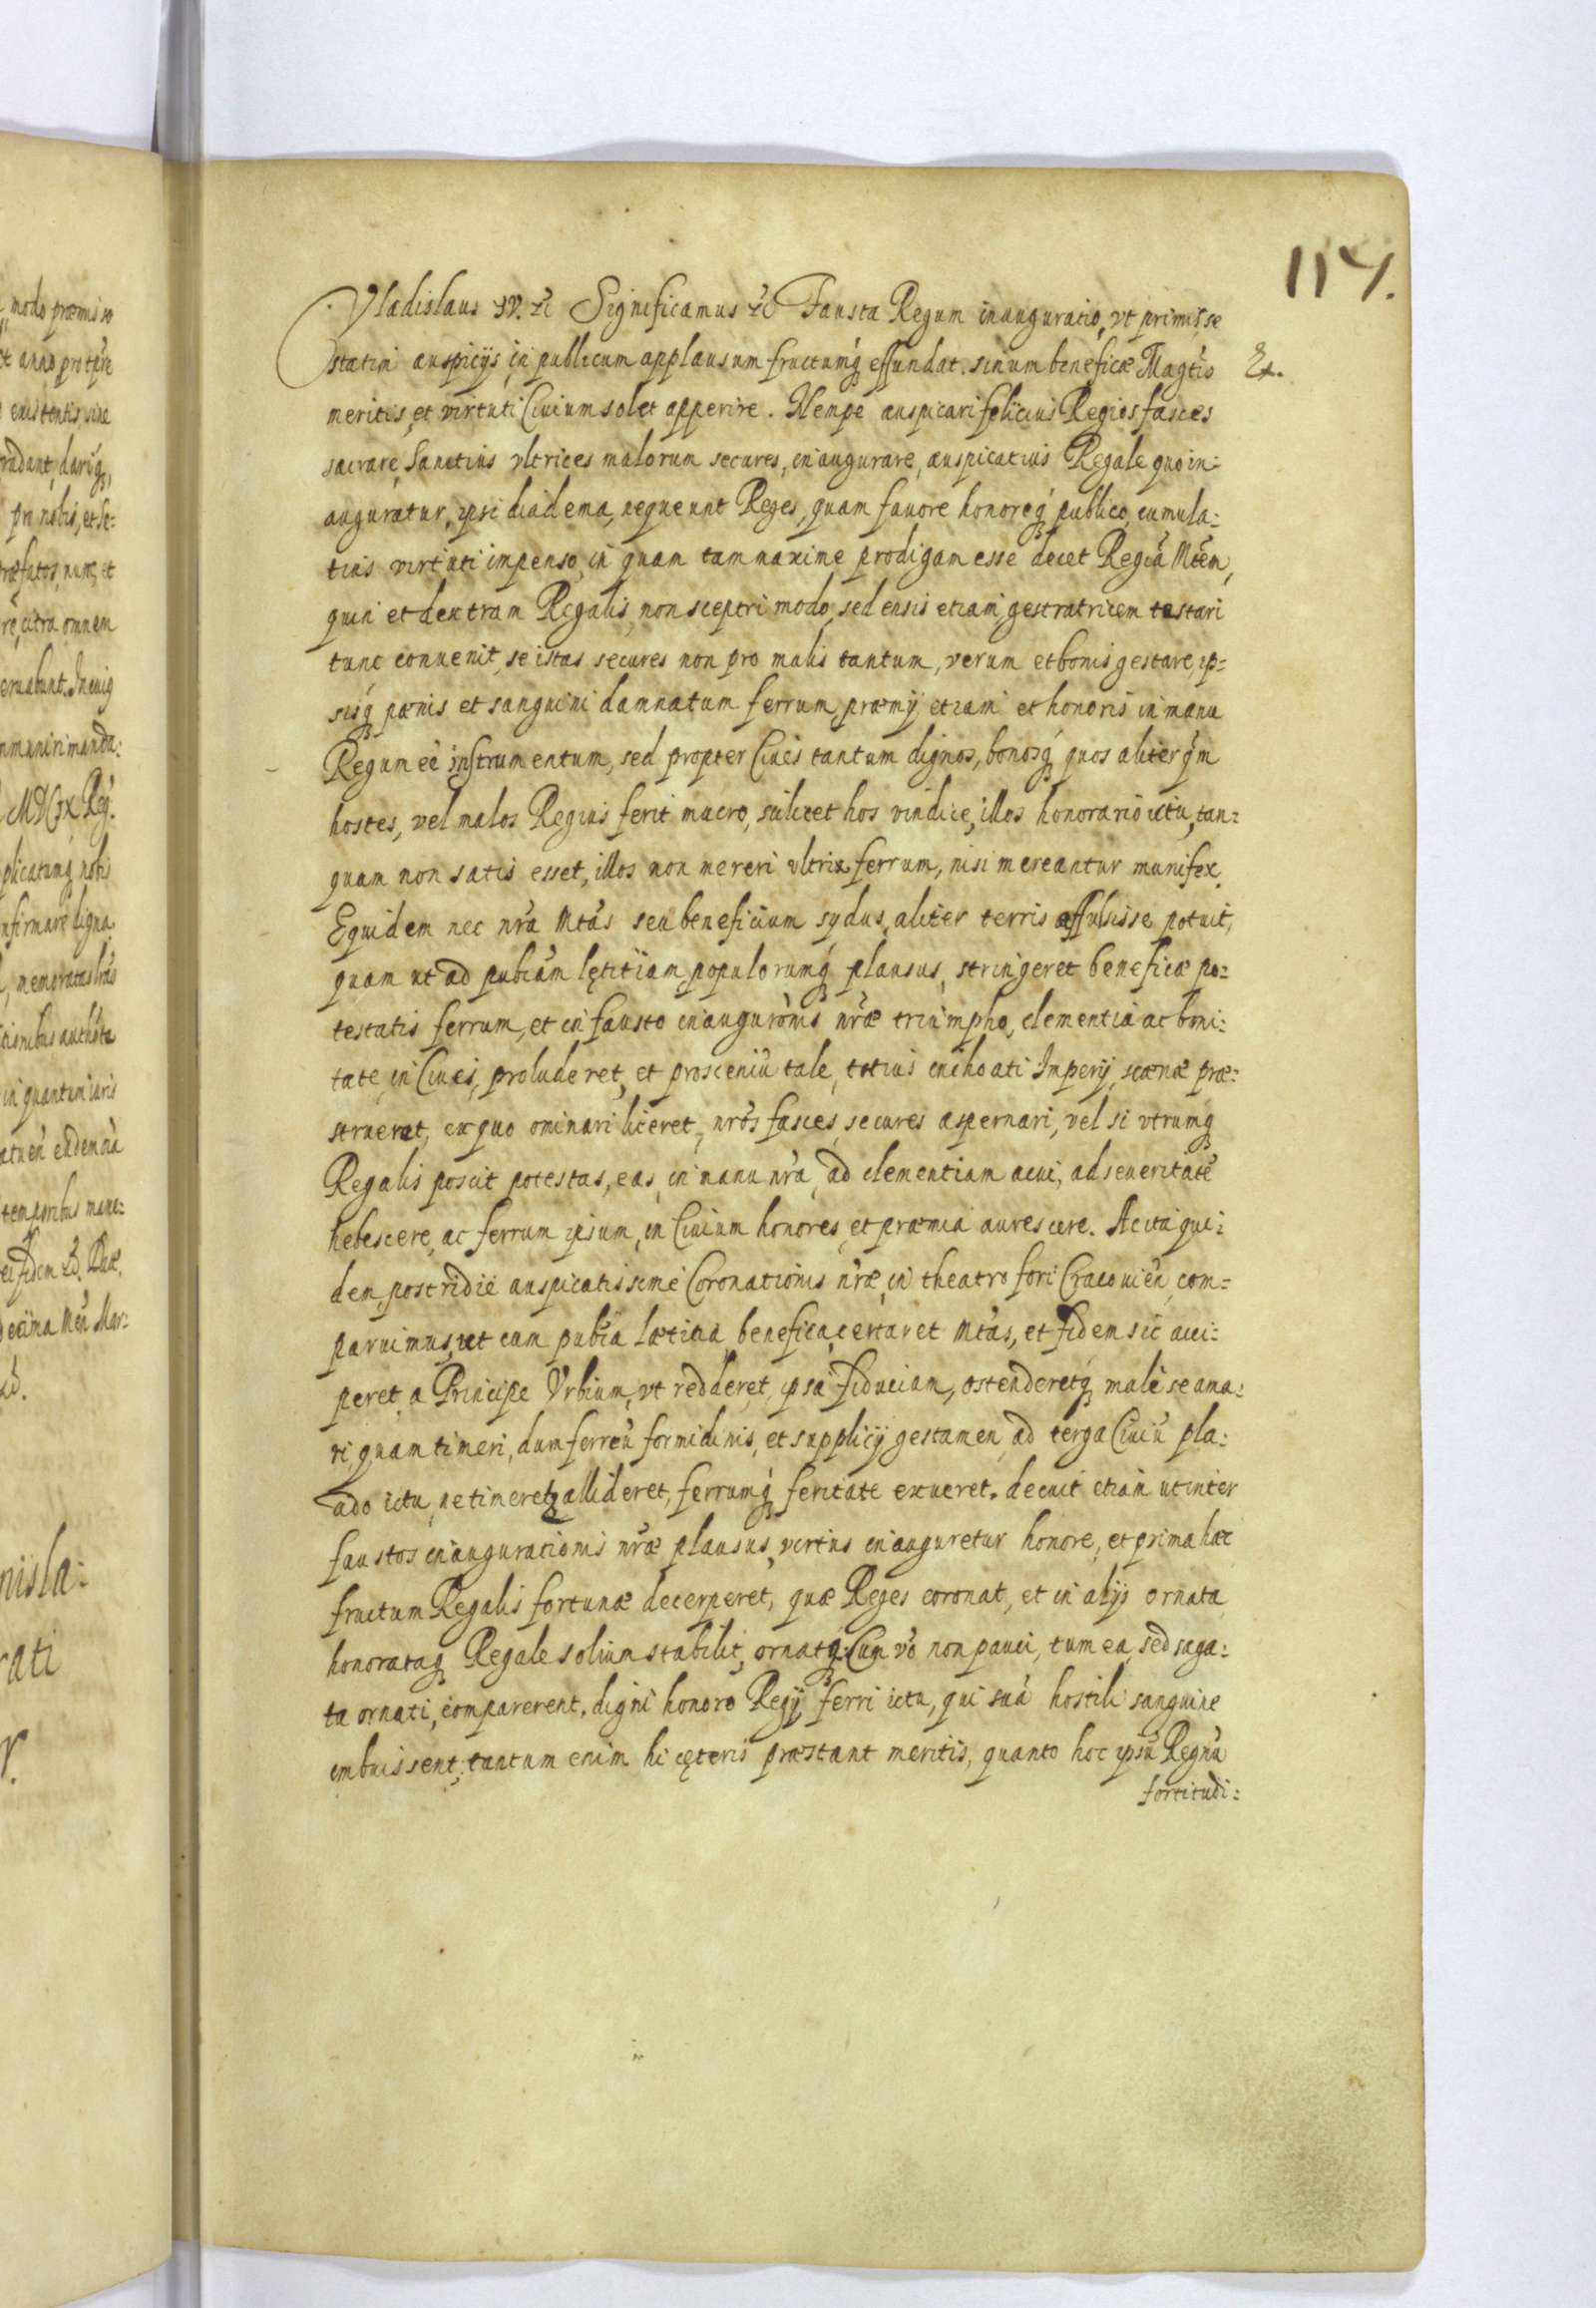 117.
Vladislaus IV. etc Significamus etc Fausta Regum inauguratio, vt primis se
statim auspicijs in publicum applausum fructumq́ effundat. sinum beneficæ Magtis Ex.
meritis, et virtuti Ciuium solet apperire. Nempe auspicari felicius Regios fasces
sacrare, Sanctius vltrices malorum secures, inaugurare, auspicatius Regale quo in-
auguratur, ipsi diadema, nequeunt Reges, quam fauore honoreq́ publico, cumula-
tius virtuti impenso, in quam tam maxime prodigam esse decet Regiā Mtem,
quin et dextram Regalis, non sceptri modo, sed ensis etiam gestratricem testari
tunc conuenit, se istas secures non pro malis tantum, verum et bonis gestare, ip-
sisq́ pænis et sanguini damnatum ferrum, præmij etiam et honoris in manu
Regum eē instrumentum, sed propter Ciues tantum dignos, bonosq́ quos aliter q̃m
hostes, vel malos Regius ferit mucro, scilicet hos vindice, illos honorario ictu, tan-
quam non satis esset, illos non mereri vltrix ferrum, nisi mereantur munifex.
Equidem nec nr̃a Mtas seu beneficium sydus, aliter terris affulsisse potuit,
quam ut ad pubcam lętitiam, populorumq́ plausus, stringeret beneficæ po-
testatis ferrum, et in fausto inaugurõnis nr̃æ triumpho, clementia ac boni-
tate, in Ciues, proluderet, et prosceniū tale, totius inchoati Imperij, scænæ præ-
strueret, ex quo ominari liceret, nrõs fasces, secures aspernari, vel si vtrumq́
Regalis poscit potestas, eas, in manu nr̃a, ad clementiam acui, ad seueritatē
hebescere, ac ferrum ipsum, in Ciuium honores, et præmia aurescere. Ac ita qui-
dem, postridie auspicatissimē Coronationis nr̃æ, in theatro fori Cracouień, com-
paruimus, ut cum pubca lætitia, benefica certaret Mtas, et fidem sic acci-
peret, a Principe Vrbium, vt redderet, ipsa fiduciam, ostenderetq́ malle se ama-
ri, quam timeri, dum ferreū formidinis, et supplicij gestamen, ad terga Ciuiū pla-
cado ictu, ne timeretq allideret, ferrumq́ feritate exueret. decuit etiam ut inter
faustos inaugurationis nr̃æ plausus, virtus inauguretur honore, et prima hæc
fructum Regalis fortunæ decerperet, quæ Reges coronat, et in alijs ornata
honorataq́ Regale solium stabilit, ornatq́. Cum vo non pauci, tum ea, sed saga-
ta ornati, comparerent, digni honore Regij ferri ictu, qui suā hostili sanguine
imbuissent, tantum enim hi cęteris præstant meritis, quanto hoc ipsū Regnū
fortitudi-